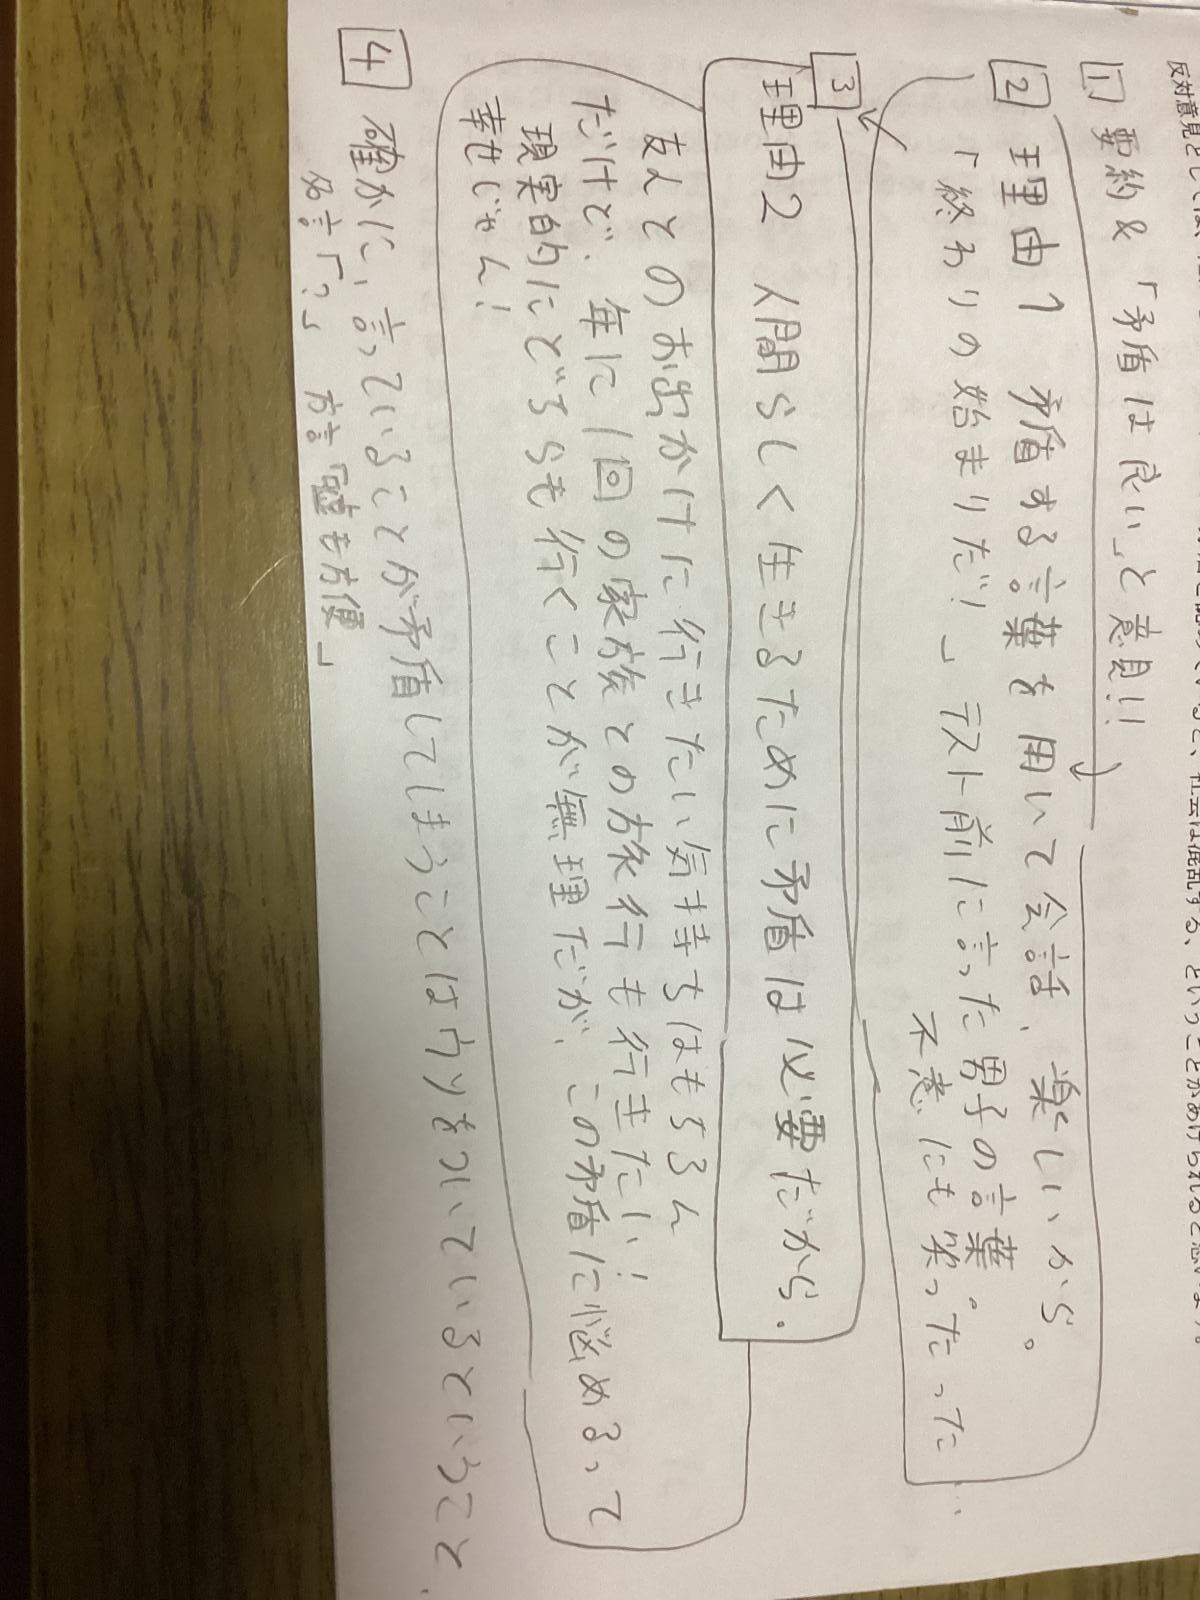 反対意見として
社会は混乱する、ということがあげられると思います。
1 要約&「矛盾は良い」と意見!!
2 理由1 矛盾する言葉を用いて会話、楽しいから。
「終わりの始まりだ!」テスト前に言った男子の言葉
不意にも笑ったった…
3 理由2 人間らしく生きるために矛盾は必要だから.
友人とのお出かけに行きたい気持ちはもちろん
だけど、毎に1回の家族との旅行も行きたい!
現実的にどちらも行くことが無理だが、この矛盾に悩めるって
幸せじゃん!
4 確かに、言っていることが矛盾してしまうことはウソをついているということ、
名言「?」 方言「嘘も方便」